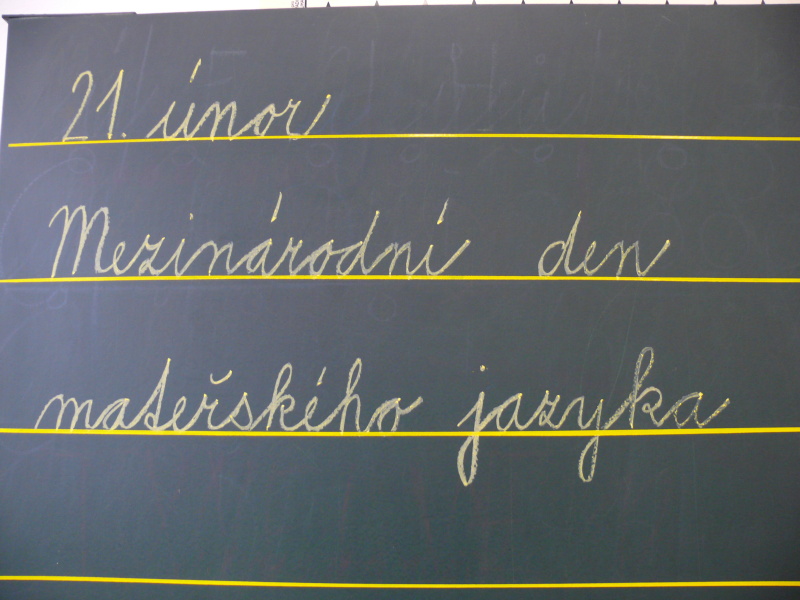 21. únor
Mezinárodní den
mateřského jazyka